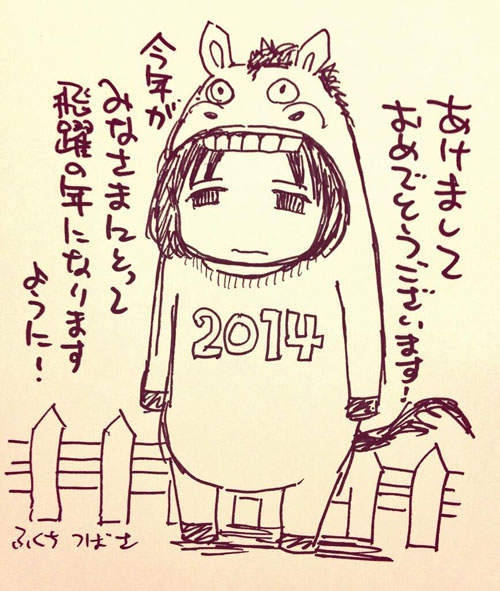 あけまして
おめでとうございます!
今年が
みなさまにとって
飛躍の年になります
ように!
2014
ふくち つばさ